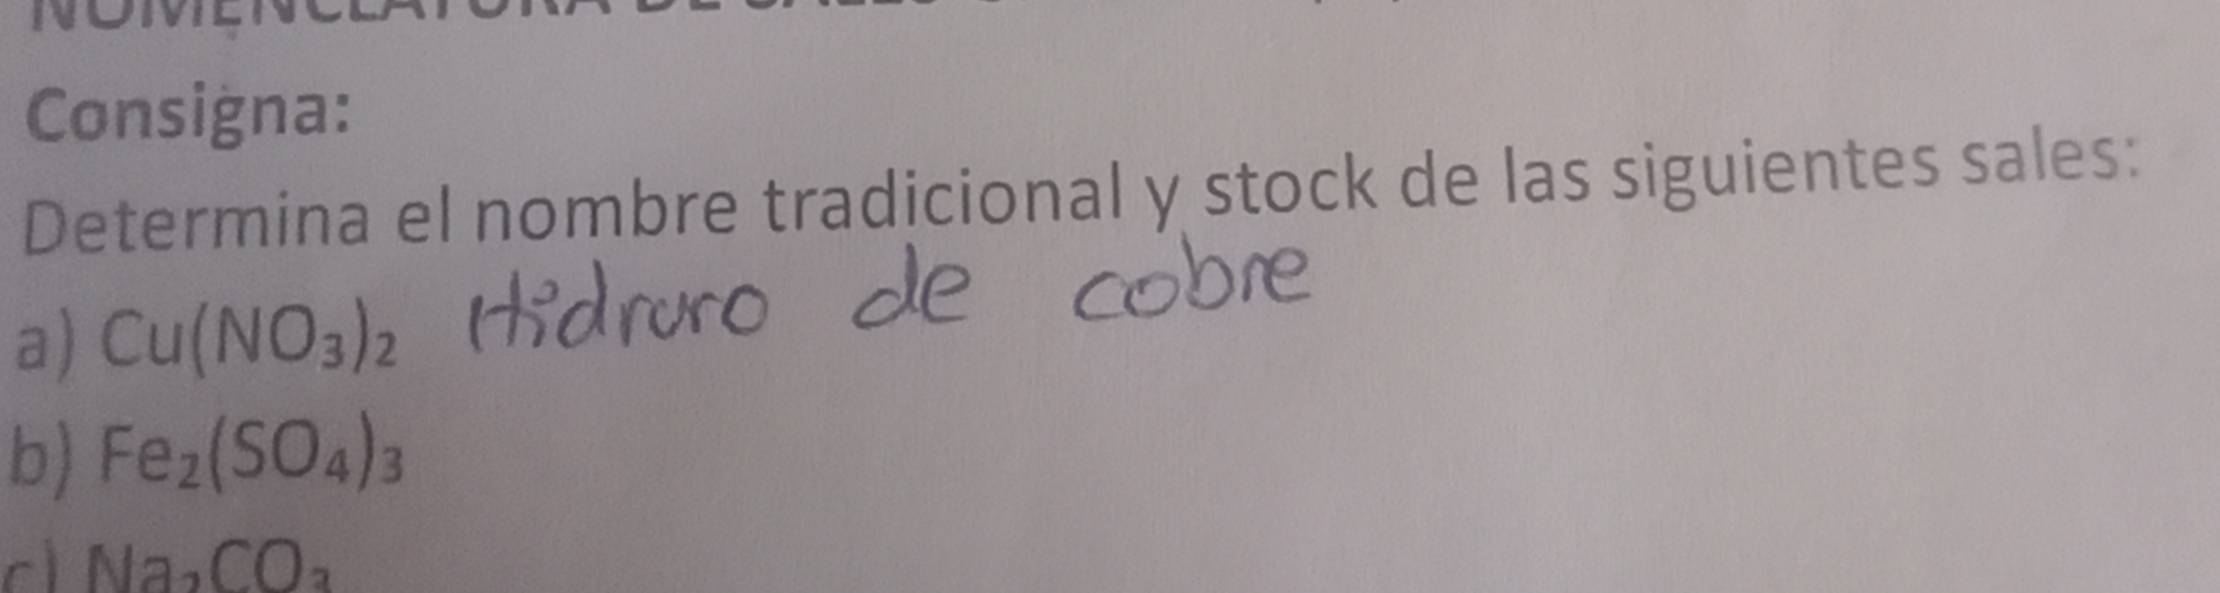 NOMENCLATURA DE
Consigna:
Determina el nombre tradicional y stock de las siguientes sales:
a) Cu(NO₃)₂ Hidruro de cobre
b) Fe₂(SO₄)₃
c) Na₂CO₃